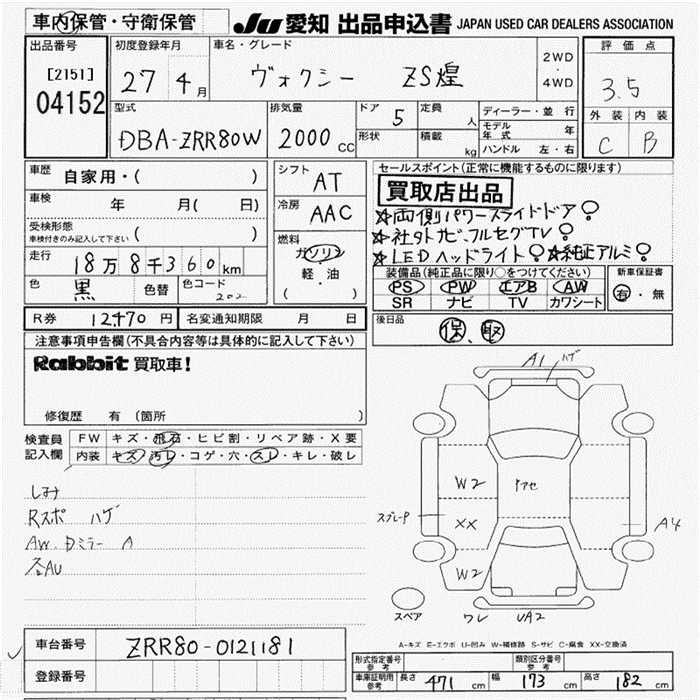 車内保管・守衛保管 JU 愛知 出品申込書 JAPAN USED CAR DEALERS ASSOCIATION
出品番号 初度登録年月 車名・グレード 評価点
[2151] 27年4月 ヴォクシー ZS煌 2WD・4WD 3.5
04152 外装 内装
型式 排気量 ドア 5 定員 人 ディーラー・並行 C B
DBA-ZRR80W 2000 CC 形状 積載 kg モデル年式 年
ハンドル 左・右
車歴 自家用・( ) シフト AT セールスポイント(正常に機能するものに限ります)
買取店出品
車検 年 月( 日) 冷房 AAC ☆両側パワースライドドア
受検形態 ☆社外ナビ・フルセグTV
車検付きのみ記入して下さい ( ) 燃料 ガソリン ☆LEDヘッドライト ☆純正アルミ
走行 18万8千360km 軽・油 装備品(純正品に限り○をつけてください) 新車保証書
色 黒 色替 色コード 202 ( ) PS PW エアB AW 有・無
SR ナビ TV カワシート
R券 12,470円 名変通知期限 月 日 後日品 保、取
注意事項申告欄(不具合内容等は具体的に記入して下さい)
Rabbit 買取車!
修復歴 有 (箇所 )
検査員 FW キズ・飛石・ヒビ割・リペア跡・X要
記入欄 内装 キズ・汚レ・コゲ・穴・スレ・キレ・破レ
A1 ハゲ
しみ
Rスポ ハゲ
AW.Dミラー A
各AU
W2
スプレーP XX A4
W2
スペア ワレ UA2
車台番号 ZRR80-0121181
A-キズ E-エクボ U-凹み W-補修跡 S-サビ C-腐食 XX-交換済
登録番号 形式指定番号 参考 類別区分番号 参考
車庫証明用 参考 長さ 471 cm 幅 173 cm 高さ 182 cm